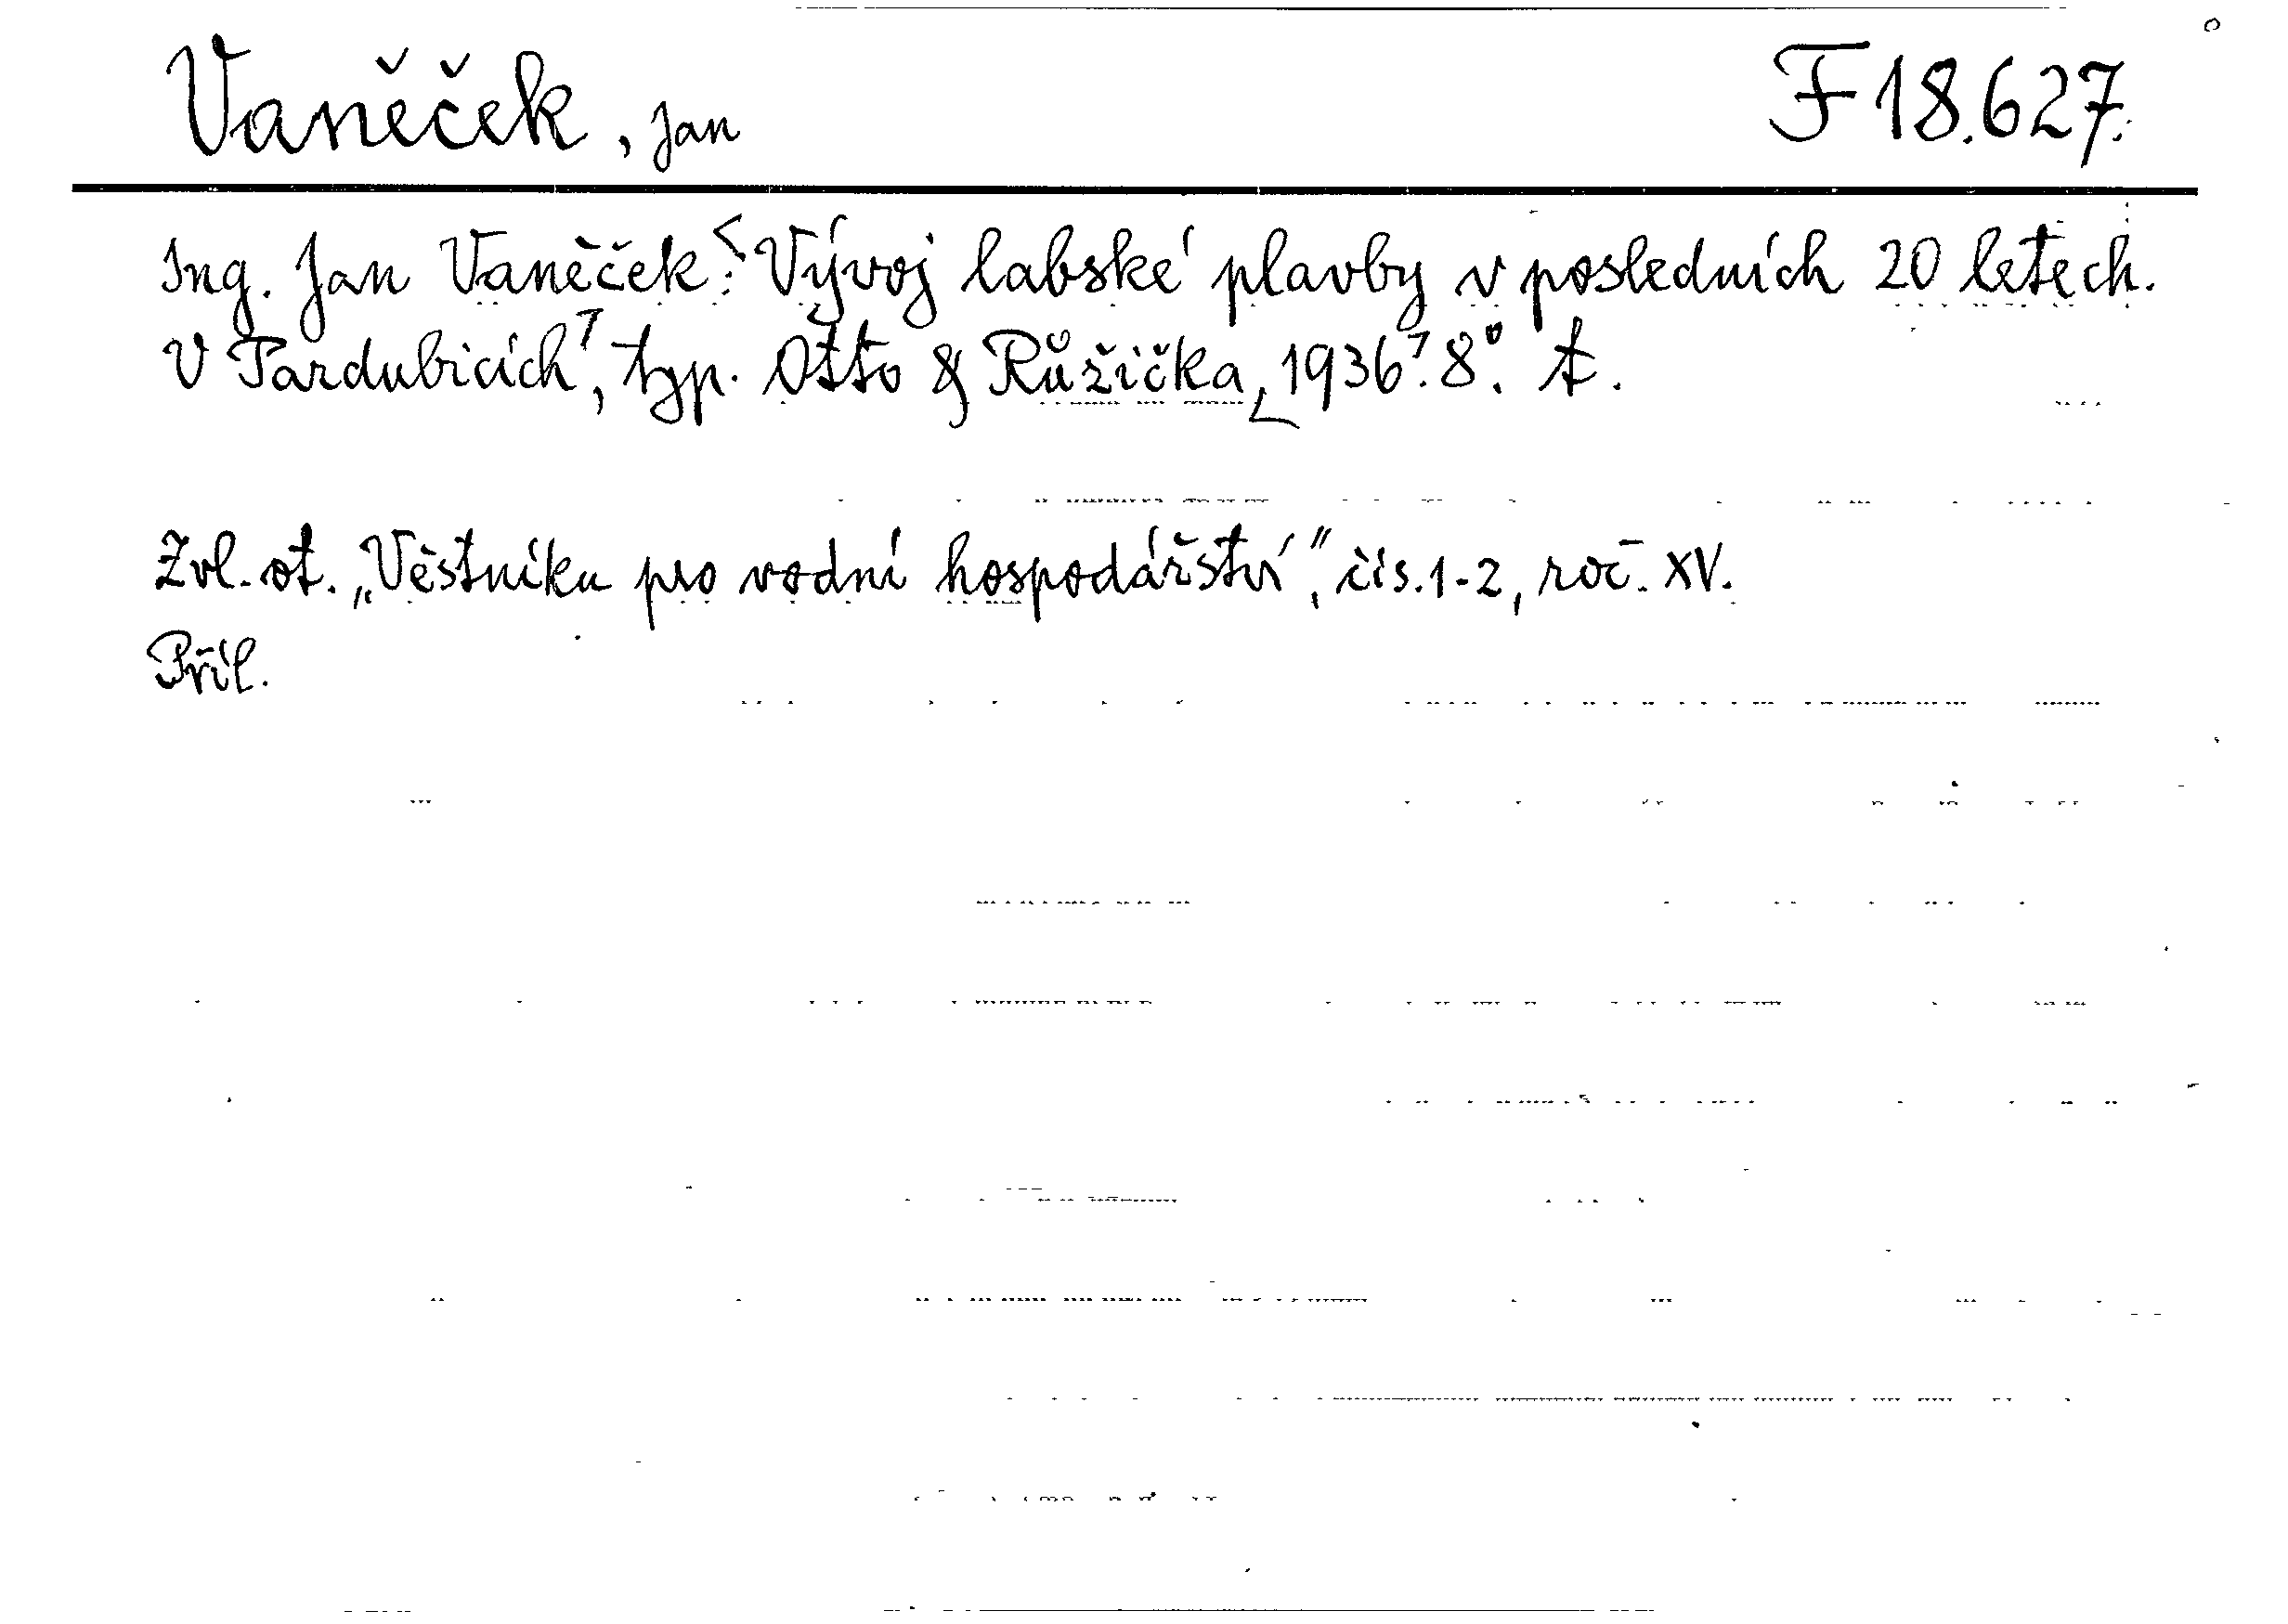 Vaněček, Jan F 18.627.
Ing. Jan Vaněček: Vývoj labské plavby v posledních 20 letech.
V Pardubicích, typ. Otto & Růžička, 1936. 8°. A.
Zvl. ot. „Věstníku pro vodní hospodářství", čís. 1-2, roč. XV.
Příl.